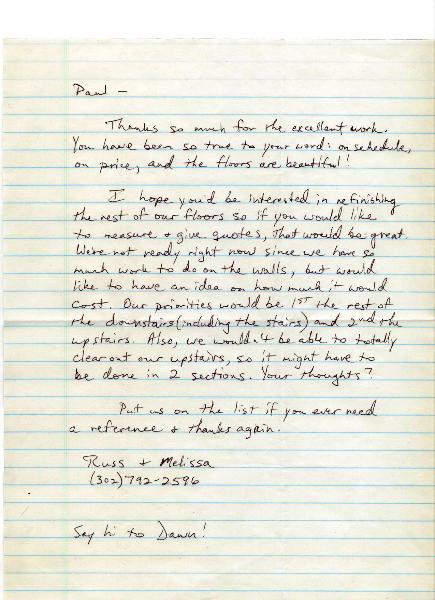 Paul —
Thanks so much for the excellent work.
You have been so true to your word: on schedule,
on price, and the floors are beautiful!
I hope you'd be interested in refinishing
the rest of our floors so if you would like
to measure + give quotes, that would be great.
We're not ready right now since we have so
much work to do on the walls, but would
like to have an idea on how much it would
cost. Our priorities would be 1st the rest of
the downstairs (including the stairs) and 2nd the
upstairs. Also, we wouldn't be able to totally
clear out our upstairs, so it might have to
be done in 2 sections. Your thoughts?
Put us on the list if you ever need
a reference + thanks again.
Russ + Melissa
(302) 792-2596
Say hi to Dawn!